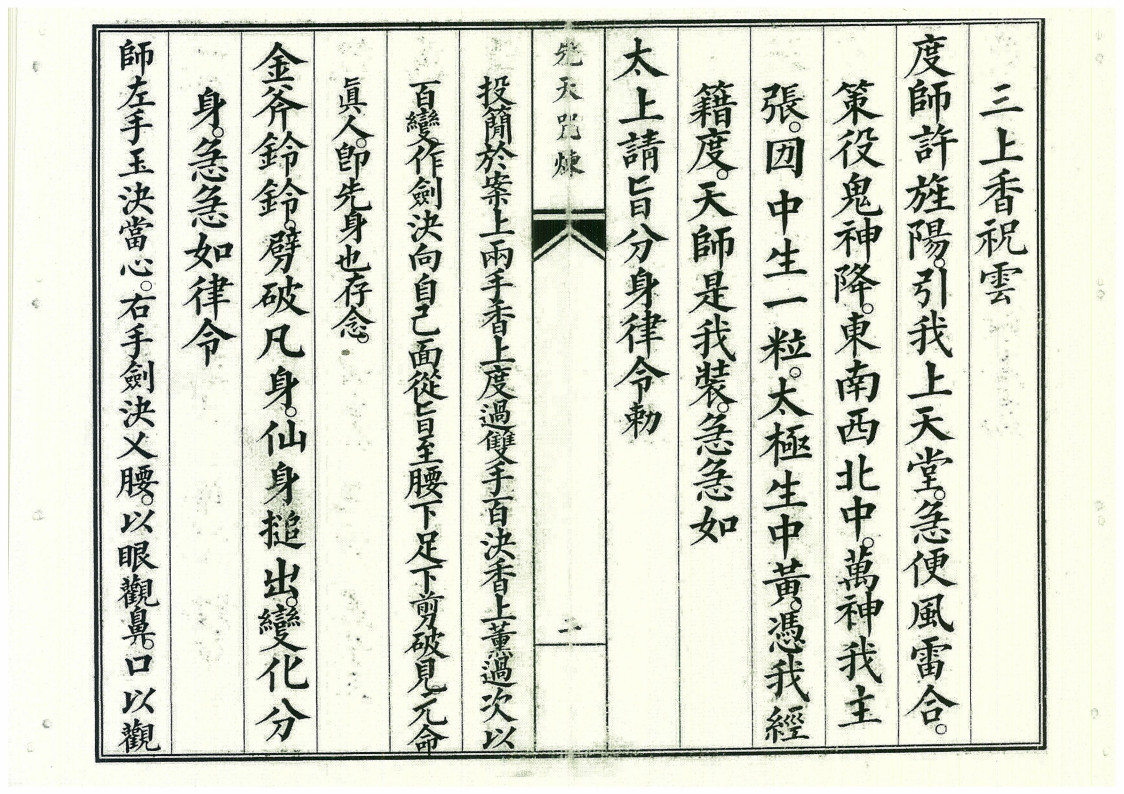 三上香祝雲
度師許旌陽。引我上天堂。急便風雷合。
策役鬼神降。東南西北中。萬神我主
張。囨中生一粒。太極生中黃。憑我經
籍度。天師是我裝。急急如
太上請旨分身律令勅
先天咒煉
二
投簡於案上兩手香上度過雙手百決香上薰過次以
百變作劍決向自己面從旨至腰下足下剪破見元命
眞人。卽先身也存念。
金斧鈴鈴。劈破凡身。仙身搥出。變化分
身。急急如律令
師左手玉決當心。右手劍決乂腰。以眼觀鼻。口以觀